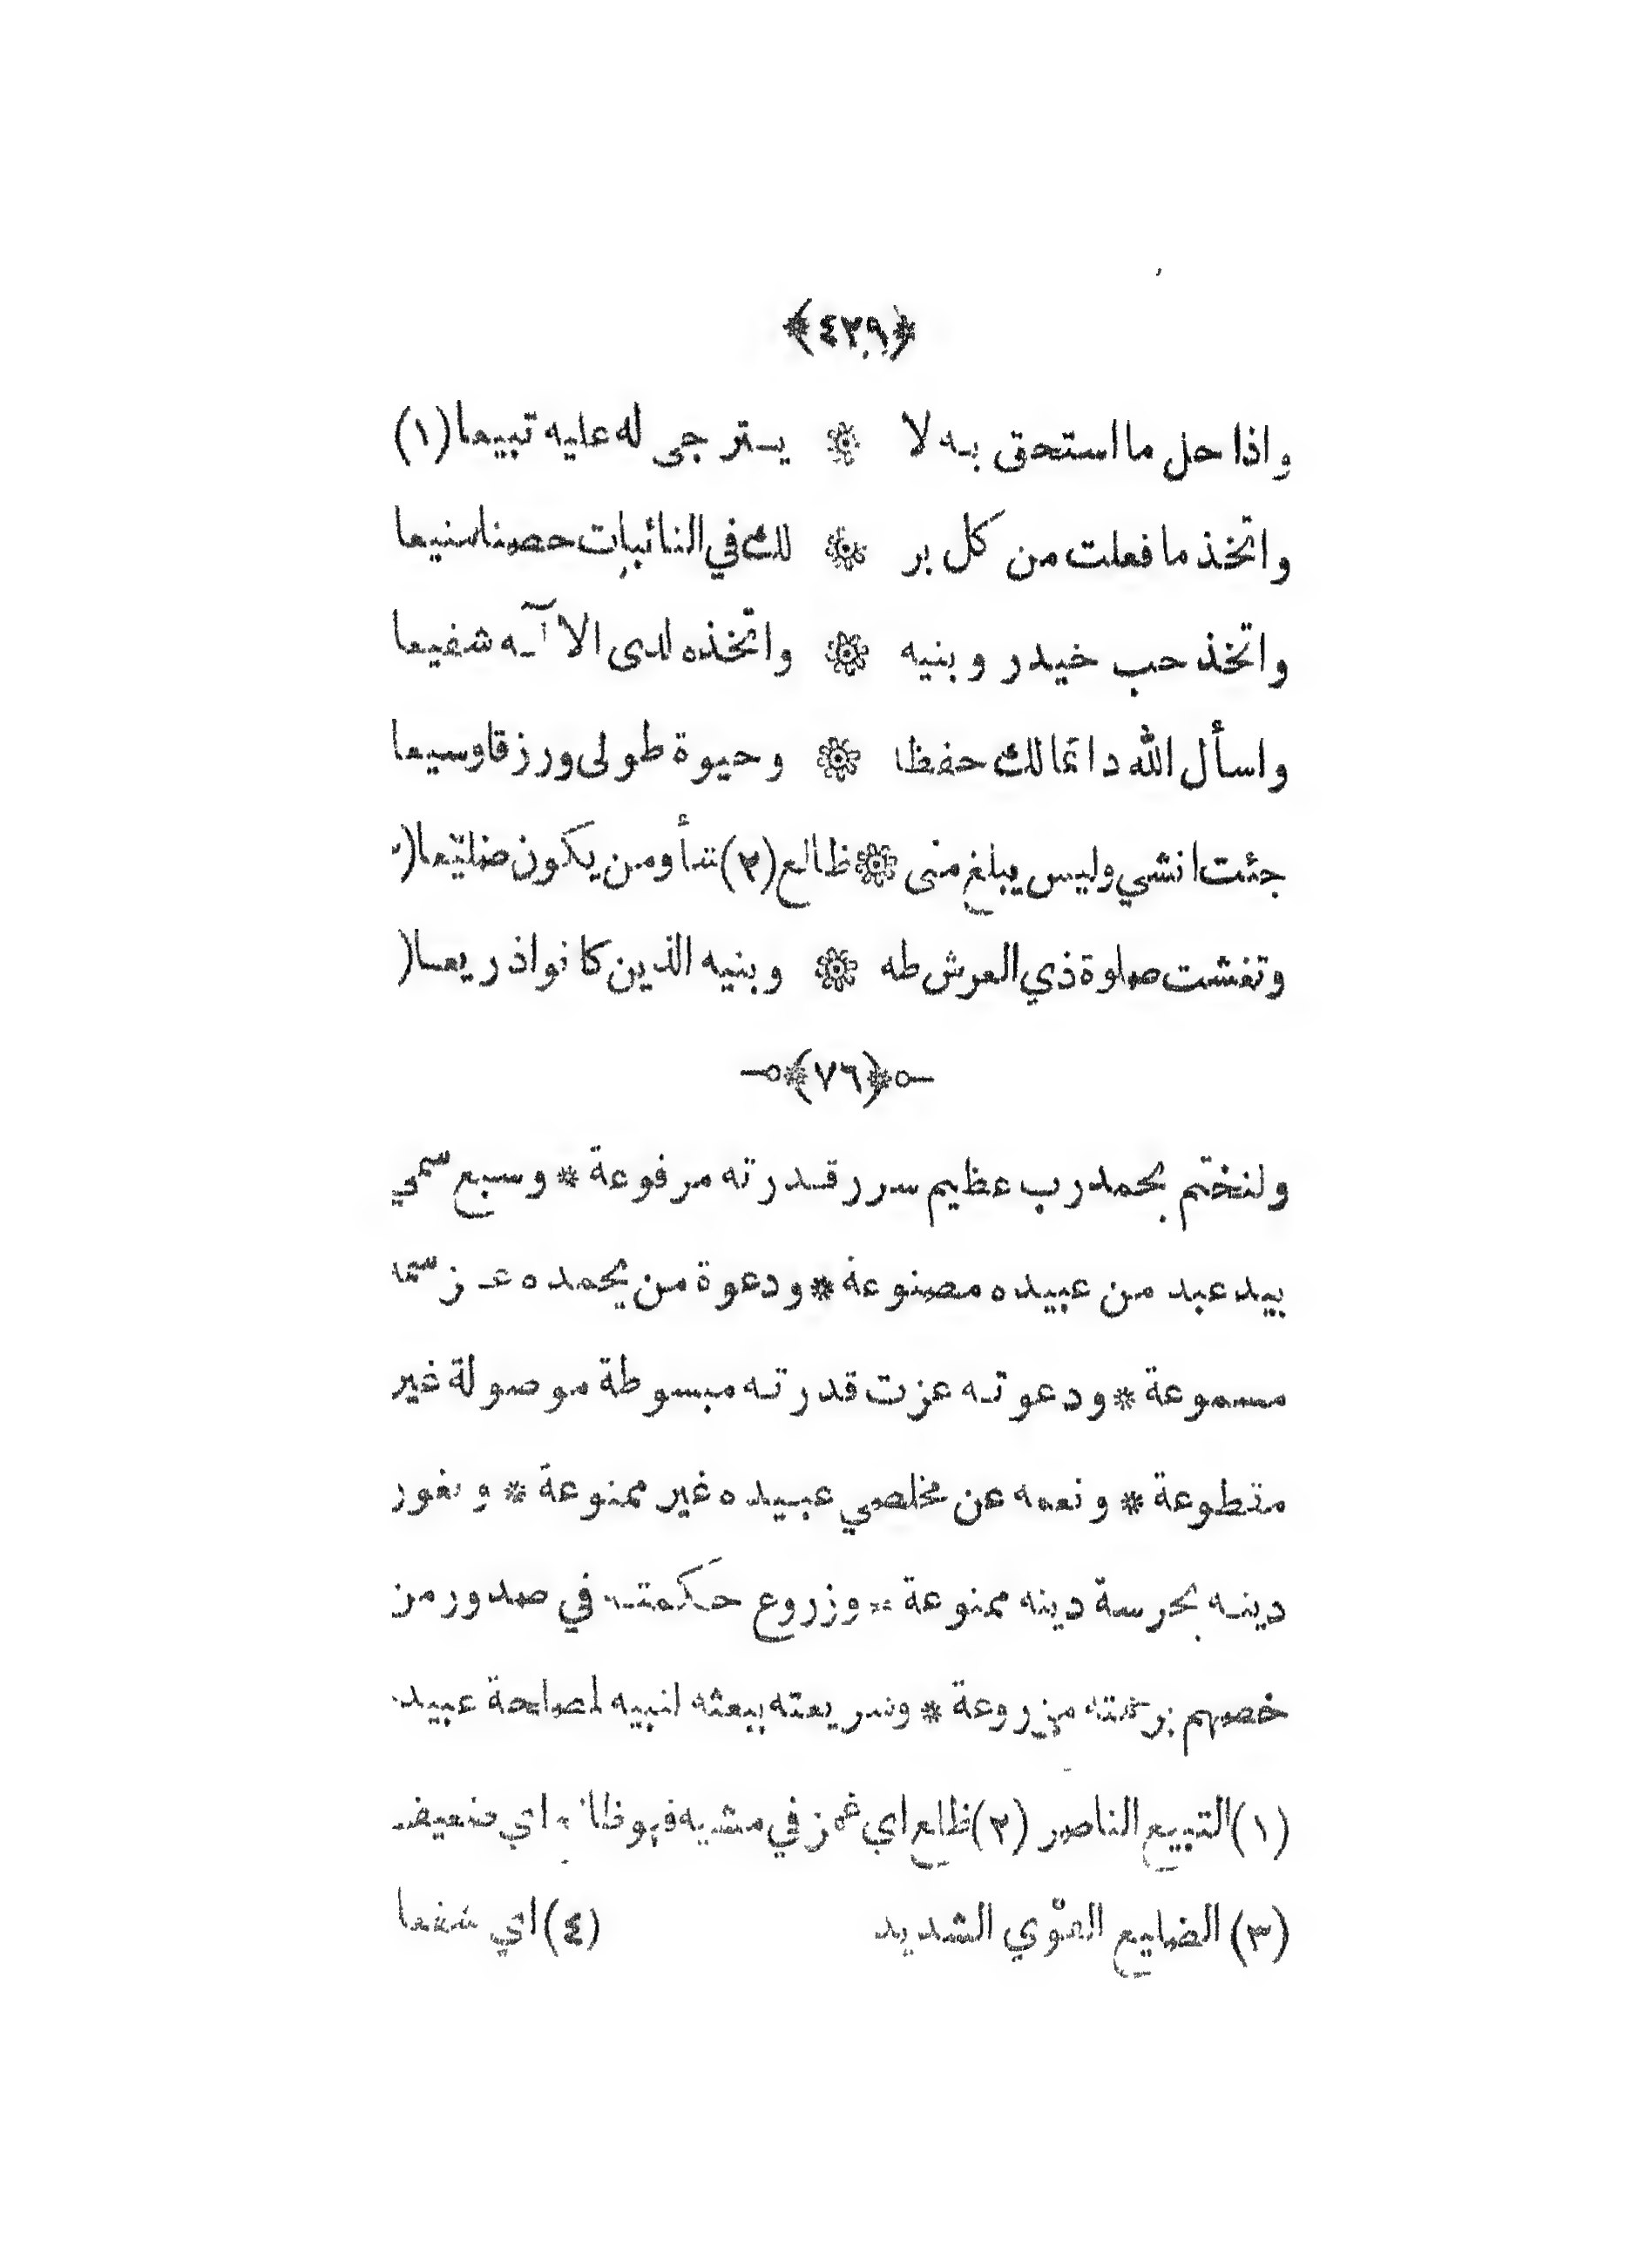 ﴿٤٣٩﴾
واذا حل ما استحق به لا * يترجى له عليه تبيعا (١)
واتخذ ما فعلت من كل بر * لك في النائبات حصنا منيعا
واتخذ حب حيدر وبنيه * واتخذه لدى الاآله شفيعا
واسأل الله دائما لك حفظا * وحيوة طولى ورزقا وسيعا
جئت انشي وليس يبلغ منى * ظالع (٢) شأو من يكون ضليعا (
وتغشت صلوة ذي العرش طه * وبنيه الذين كانوا ذريعا (
﴿٧٦﴾
ولنختم بحمد رب عظيم سرر قدرته مرفوعة * وسبع سمي
بيد عبد من عبيده مصنوعة * ودعوة من يحمده عز سمه
مسموعة * ودعوته عزت قدرته مبسوطة موصولة غير
مقطوعة * ونعمه عن مخلصي عبيده غير ممنوعة * وثغور
دينه بحرسة دينه ممنوعة * وزروع حكمته في صدور من
خصهم برحمته مزروعة * وشريعته ببعثه لنبيه لمصلحة عبيد
(١) التبيع الناصر (٢) ظالع اي غمز في مشيه فهو ظالع اي ضعيف
(٣) الضليع القوي الشديد (٤) اي شفعا